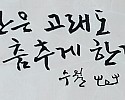 은 고래도
춤추게 한
수월